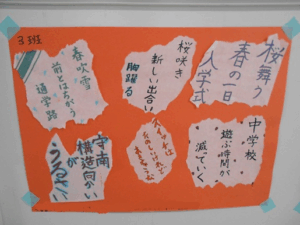 3班
桜舞う
春の一日
入学式
桜咲き
新しい出合い
胸躍る
春吹雪
前とはちがう
通学路
中学校
遊ぶ時間が
減っていく
守南
構造向かい
が
うるさい